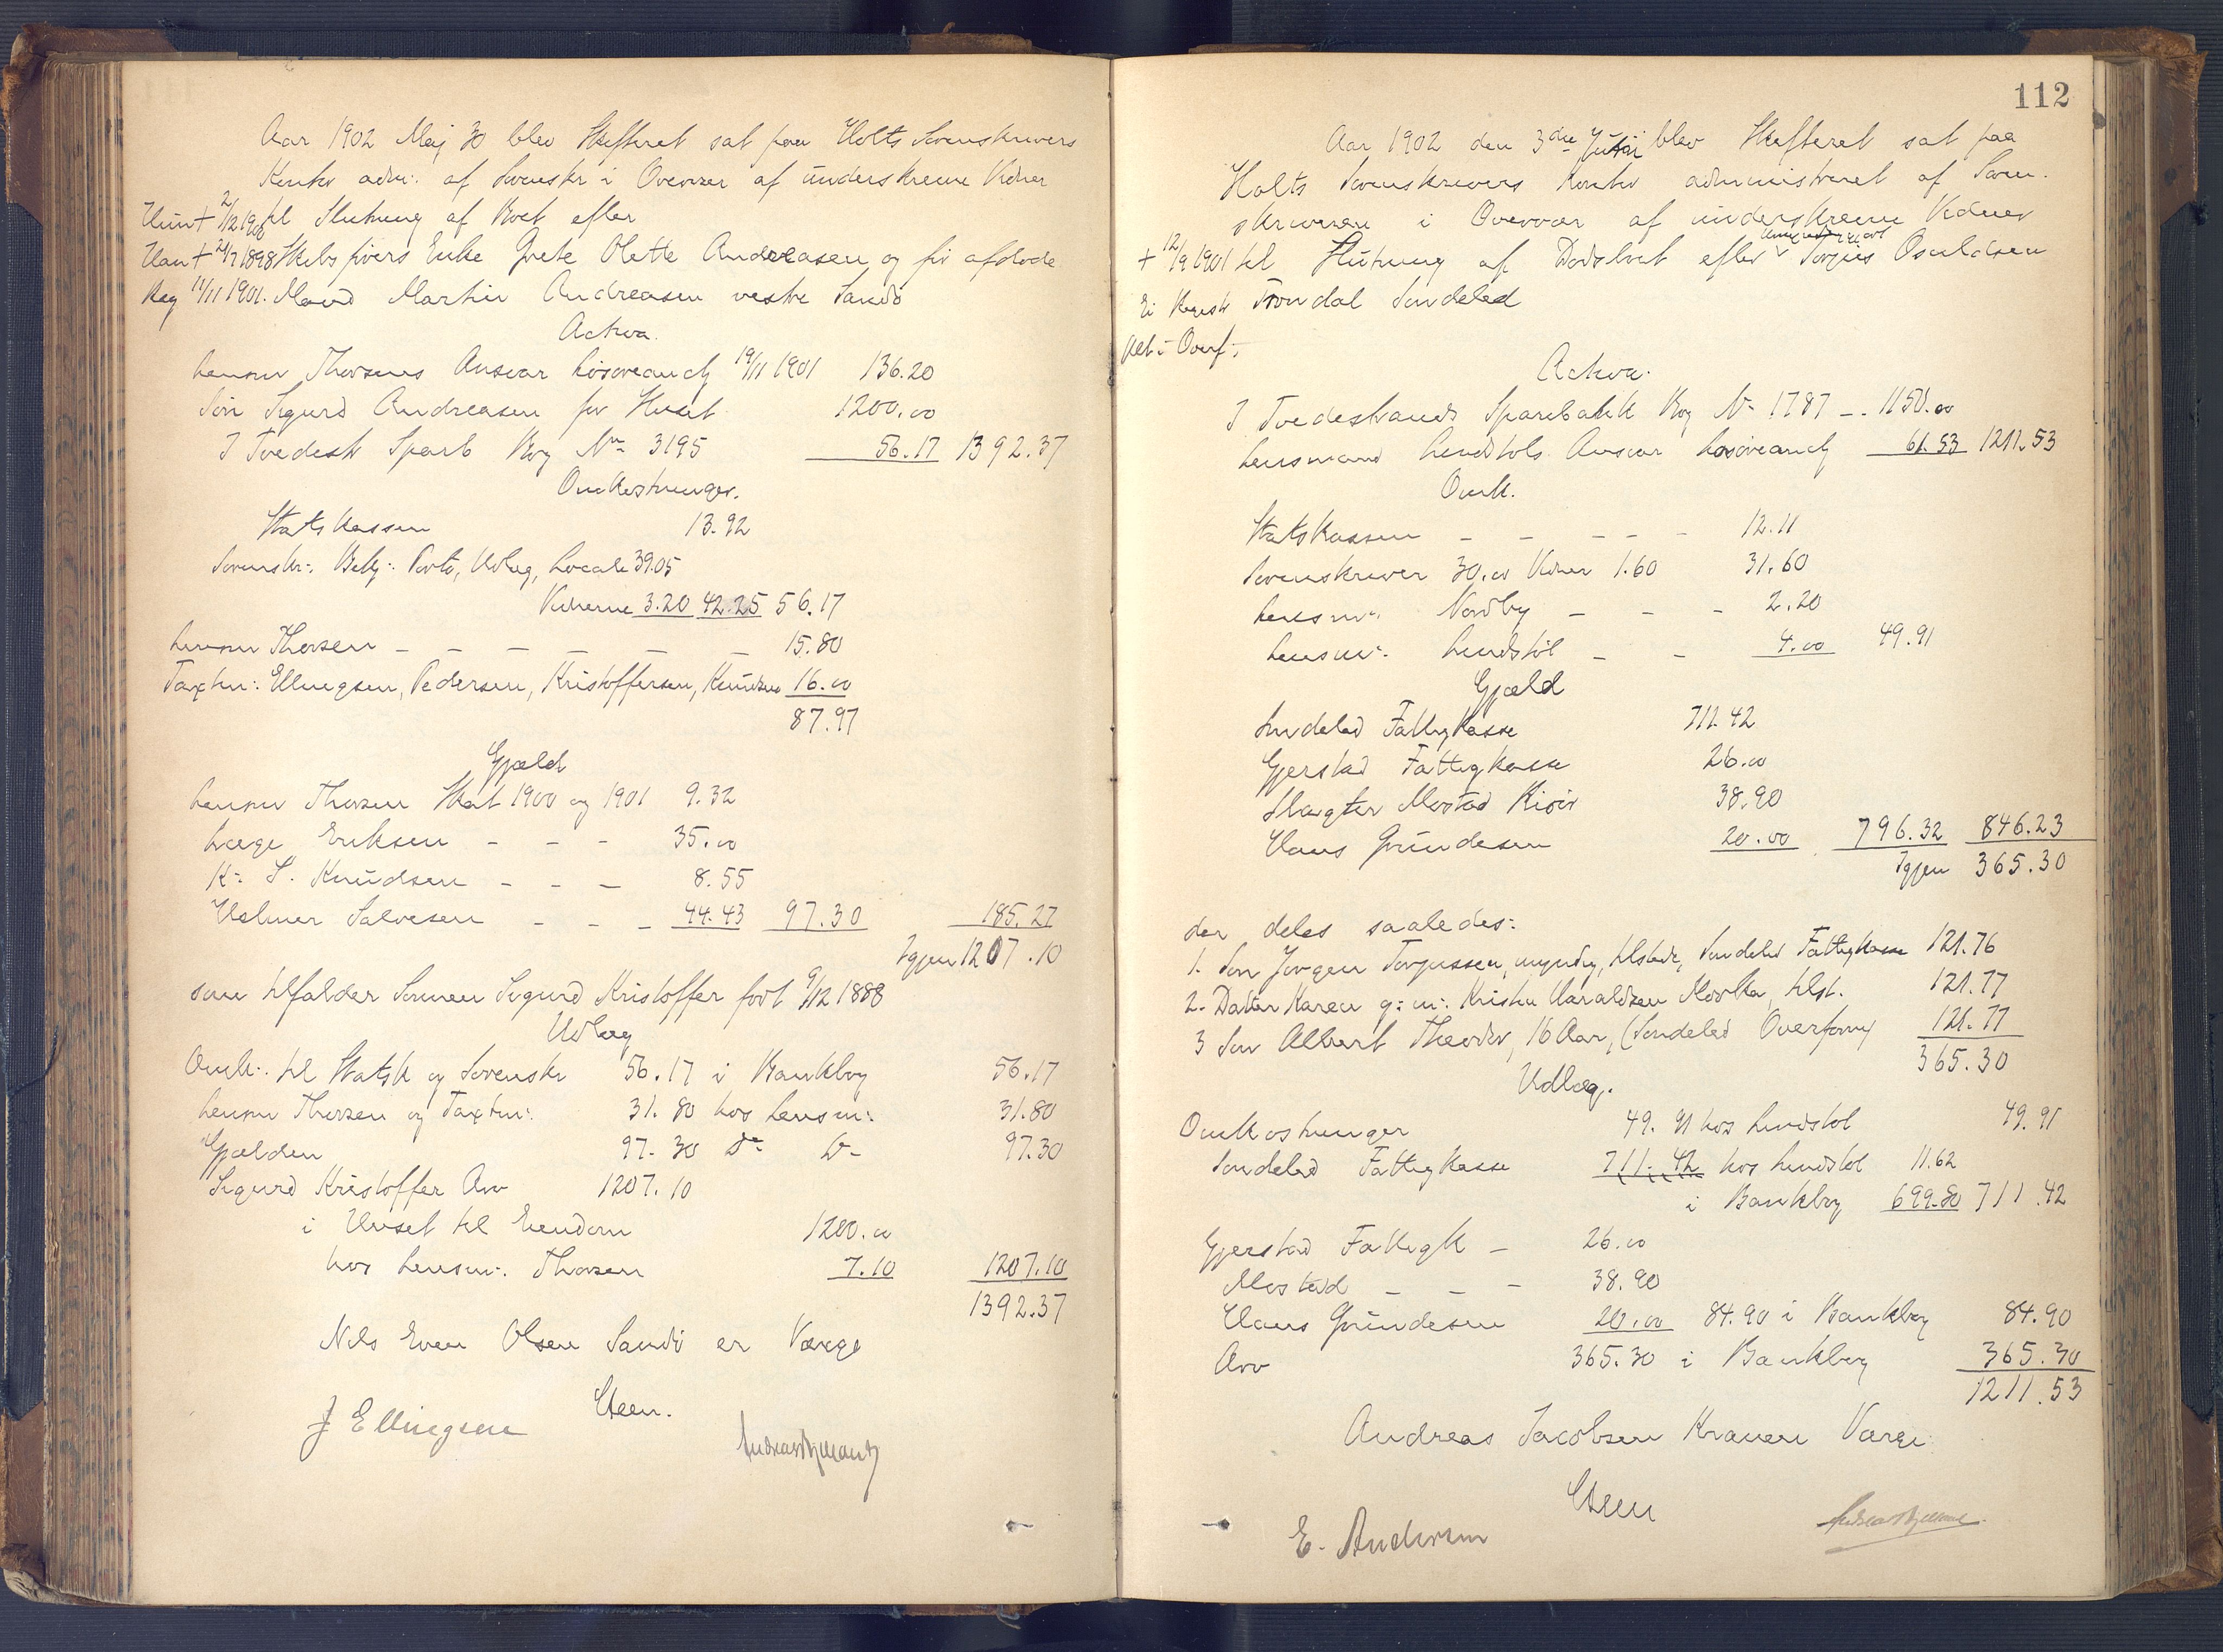 Aar 1902 Maj 30 blev Skifteret sat paa Holts Sorenskrivers
Kontor adm: af Sorenskr i Overvær af underskrevne Vidner
Hun + 2/12 1900 til Slutning af Boet efter
Han + 24/7 1898 Skibsførers Enke Grete Olette Andreasen og før afdøde
Reg 11/11 1901. Mand Martin Andreasen vestre Sandø
Activa.
Lensm Thorsens Ansvar Løsøreauch 19/11 1901 136.20
Søn Sigurd Andreasen for Huset 1200.00
I Tvedestr Sparb Bog No 3195 56.17 1392.37
Omkostninger.
Statskassen 13.92
Sorenskr: Beth: Porto, Udlæg, Locale 39.05
Vidnerne 3.20 42.25 56.17
Lensm Thorsen - - - - - - 15.80
Taxtm: Ellingsen, Pedersen, Kristoffersen, Knudsen 16.00
87.97
Gjæld
Lensm Thorsen Skat 1900 og 1901 9.32
Læge Eriksen - - - 35.00
K: S. Knudsen - - - 8.55
Helmer Salvesen - - - 44.43 97.30 185.27
Igjen 1207.10
som tilfalder Sønnen Sigurd Kristoffer født 9/12 1888
Udlæg
Omk: til Statsk og Sorenskr 56.17 i Bankbog 56.17
Lensm Thorsen og Taxtm: 31.80 hos Lensm: 31.80
Gjælden 97.30 Do Do 97.30
Sigurd Kristoffer Arv 1207.10
i Huset til Eiendom 1200.00
hos Lensm: Thorsen 7.10 1207.10
1392.37
Nils Even Olsen Sandø er Værge
Steen.
J Ellingsen
112
Aar 1902 den 3die Juni blev Skifteret sat paa
Holts Sorenskrivers Kontor administreret af Soren-
skriveren i Overvær af underskrevne Vidner
+ 12/9 1901 til Slutning af Dødsboet efter Torjus Osuldsen
Ei Registr Trondal Søndeled
Activa.
I Tvedestrands Sparebank Bog No 1787 -. 1150.00
Lensmand Lindstøls Ansvar Løsøreauch 61.53 1211.53
Omk.
Statskassen - - - - - 12.11
Sorenskriver 30.00 Vidner 1.60 31.60
Lensm: Nordby - - - 2.20
Lensm: Lindstøl - - 4.00 49.91
Gjæld
Søndeled Fattigkasse 711.42
Gjerstad Fattigkasse 26.00
Slagter Mostad Risør 38.90
Hans Gundesen 20.00 796.32 846.23
Igjen 365.30
der deles saaledes:
1. Søn Jørgen Torjussen, myndig, tilstede, Søndeled Fattigkasse 121.76
2. Datter Karen g: m: Kristen Haraldsen, tilst. 121.77
3 Søn Albert Theodor, 16 Aar, (Søndeled Overform) 121.77
365.30
Udlæg.
Omkostninger 49.91 hos Lindstøl 49.91
Søndeled Fattigkasse 711.42 hos Lindstøl 11.62
i Bankbog 699.80 711.42
Gjerstad Fattigk - 26.00
Mostad - - - 38.90
Hans Gundesen 20.00 84.90 i Bankbog 84.90
Arv 365.30 i Bankbog 365.30
1211.53
Andreas Jacobsen Kranen Værge
Steen
E. Andersen